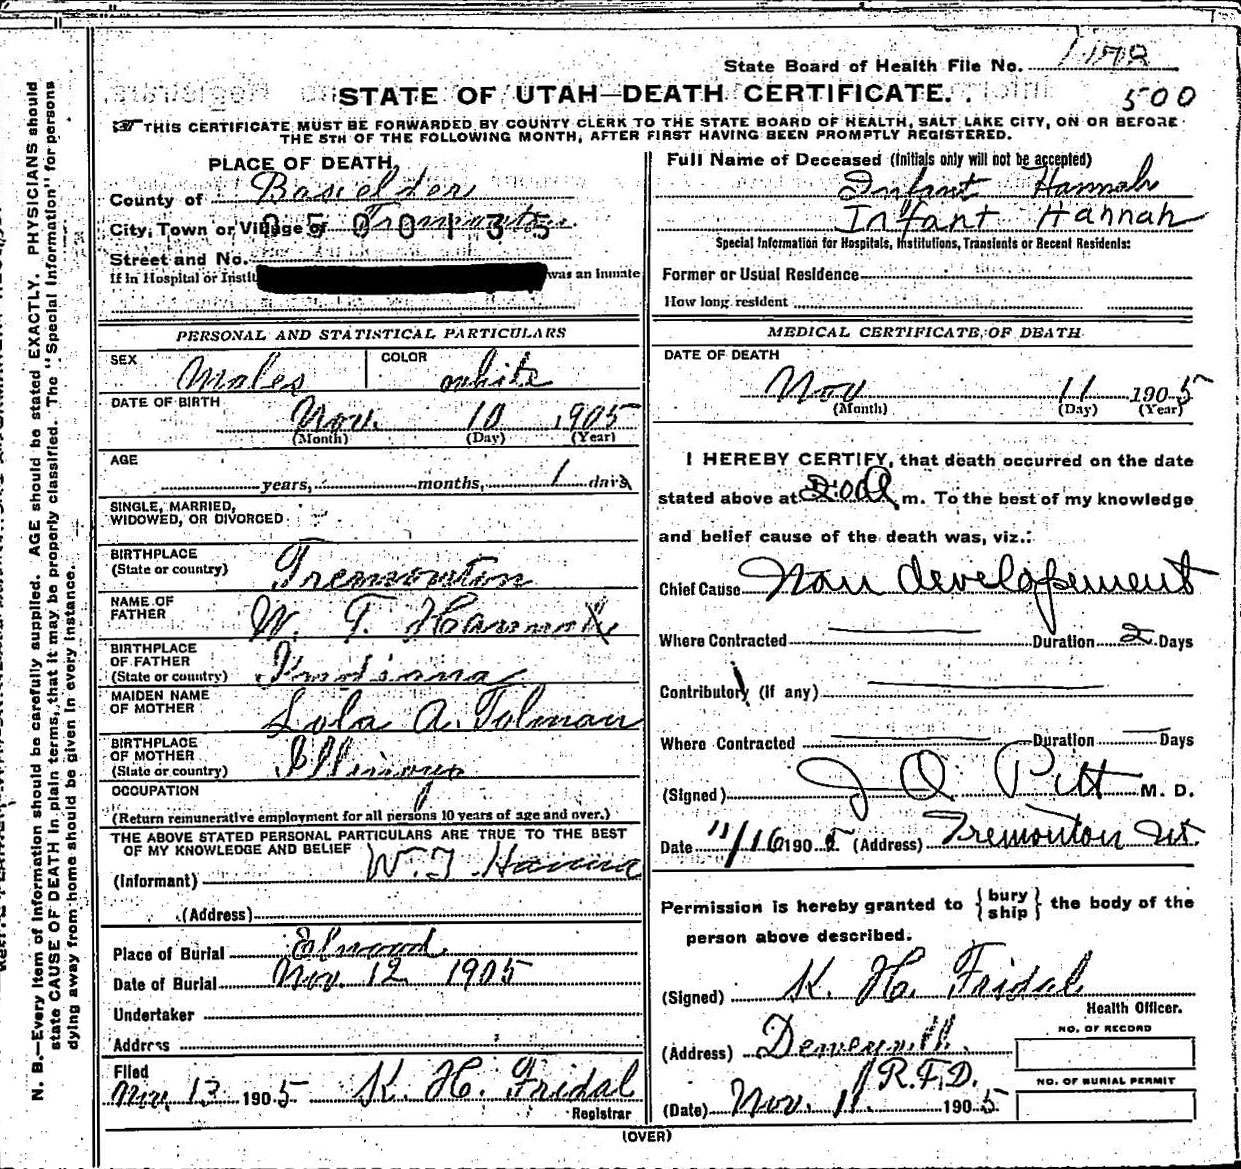 State Board of Health File No.
500
STATE OF UTAH—DEATH CERTIFICATE.
THIS CERTIFICATE MUST BE FORWARDED BY COUNTY CLERK TO THE STATE BOARD OF HEALTH, SALT LAKE CITY, ON OR BEFORE
THE 5TH OF THE FOLLOWING MONTH, AFTER FIRST HAVING BEEN PROMPTLY REGISTERED.
PLACE OF DEATH,
County of Boxelder
City, Town or Village of Tremonton
0500135
Street and No.
If in Hospital or Instit was an inmate
Full Name of Deceased (Initials only will not be accepted)
Infant Hannah
Infant Hannah
Special Information for Hospitals, Institutions, Transients or Recent Residents:
Former or Usual Residence
How long resident
PERSONAL AND STATISTICAL PARTICULARS
SEX Males COLOR white
DATE OF BIRTH Nov. 10 1905
(Month) (Day) (Year)
AGE
years, months, 1 days
SINGLE, MARRIED,
WIDOWED, OR DIVORCED
BIRTHPLACE
(State or country) Tremonton
NAME OF
FATHER W. T. Hanna
BIRTHPLACE
OF FATHER
(State or country) Indiana
MAIDEN NAME
OF MOTHER Lola A. Tolman
BIRTHPLACE
OF MOTHER
(State or country) Illinoys
OCCUPATION
(Return remunerative employment for all persons 10 years of age and over.)
THE ABOVE STATED PERSONAL PARTICULARS ARE TRUE TO THE BEST
OF MY KNOWLEDGE AND BELIEF
(Informant) W. T. Hanna
(Address)
Place of Burial Elwood
Date of Burial Nov. 12 1905
Undertaker
Address
Filed
Nov. 13 1905 K. H. Fridal
Registrar
MEDICAL CERTIFICATE OF DEATH
DATE OF DEATH
Nov 11 1905
(Month) (Day) (Year)
I HEREBY CERTIFY, that death occurred on the date
stated above at 2:00 A m. To the best of my knowledge
and belief cause of the death was, viz.:
Chief Cause Non developement
Where Contracted Duration 2 Days
Contributory (if any)
Where Contracted Duration Days
(Signed) J O Pitt M. D.
Date 11/16 1905 (Address) Tremonton Ut.
Permission is hereby granted to { bury ship } the body of the
person above described.
(Signed) K. H. Fridal
Health Officer.
(Address)
R.F.D.
(Date) Nov. 11. 1905
NO. OF RECORD
NO. OF BURIAL PERMIT
(OVER)
N. B.—Every item of information should be carefully supplied. AGE should be stated EXACTLY. PHYSICIANS should
state CAUSE OF DEATH in plain terms, that it may be properly classified. The "Special Information" for persons
dying away from home should be given in every instance.